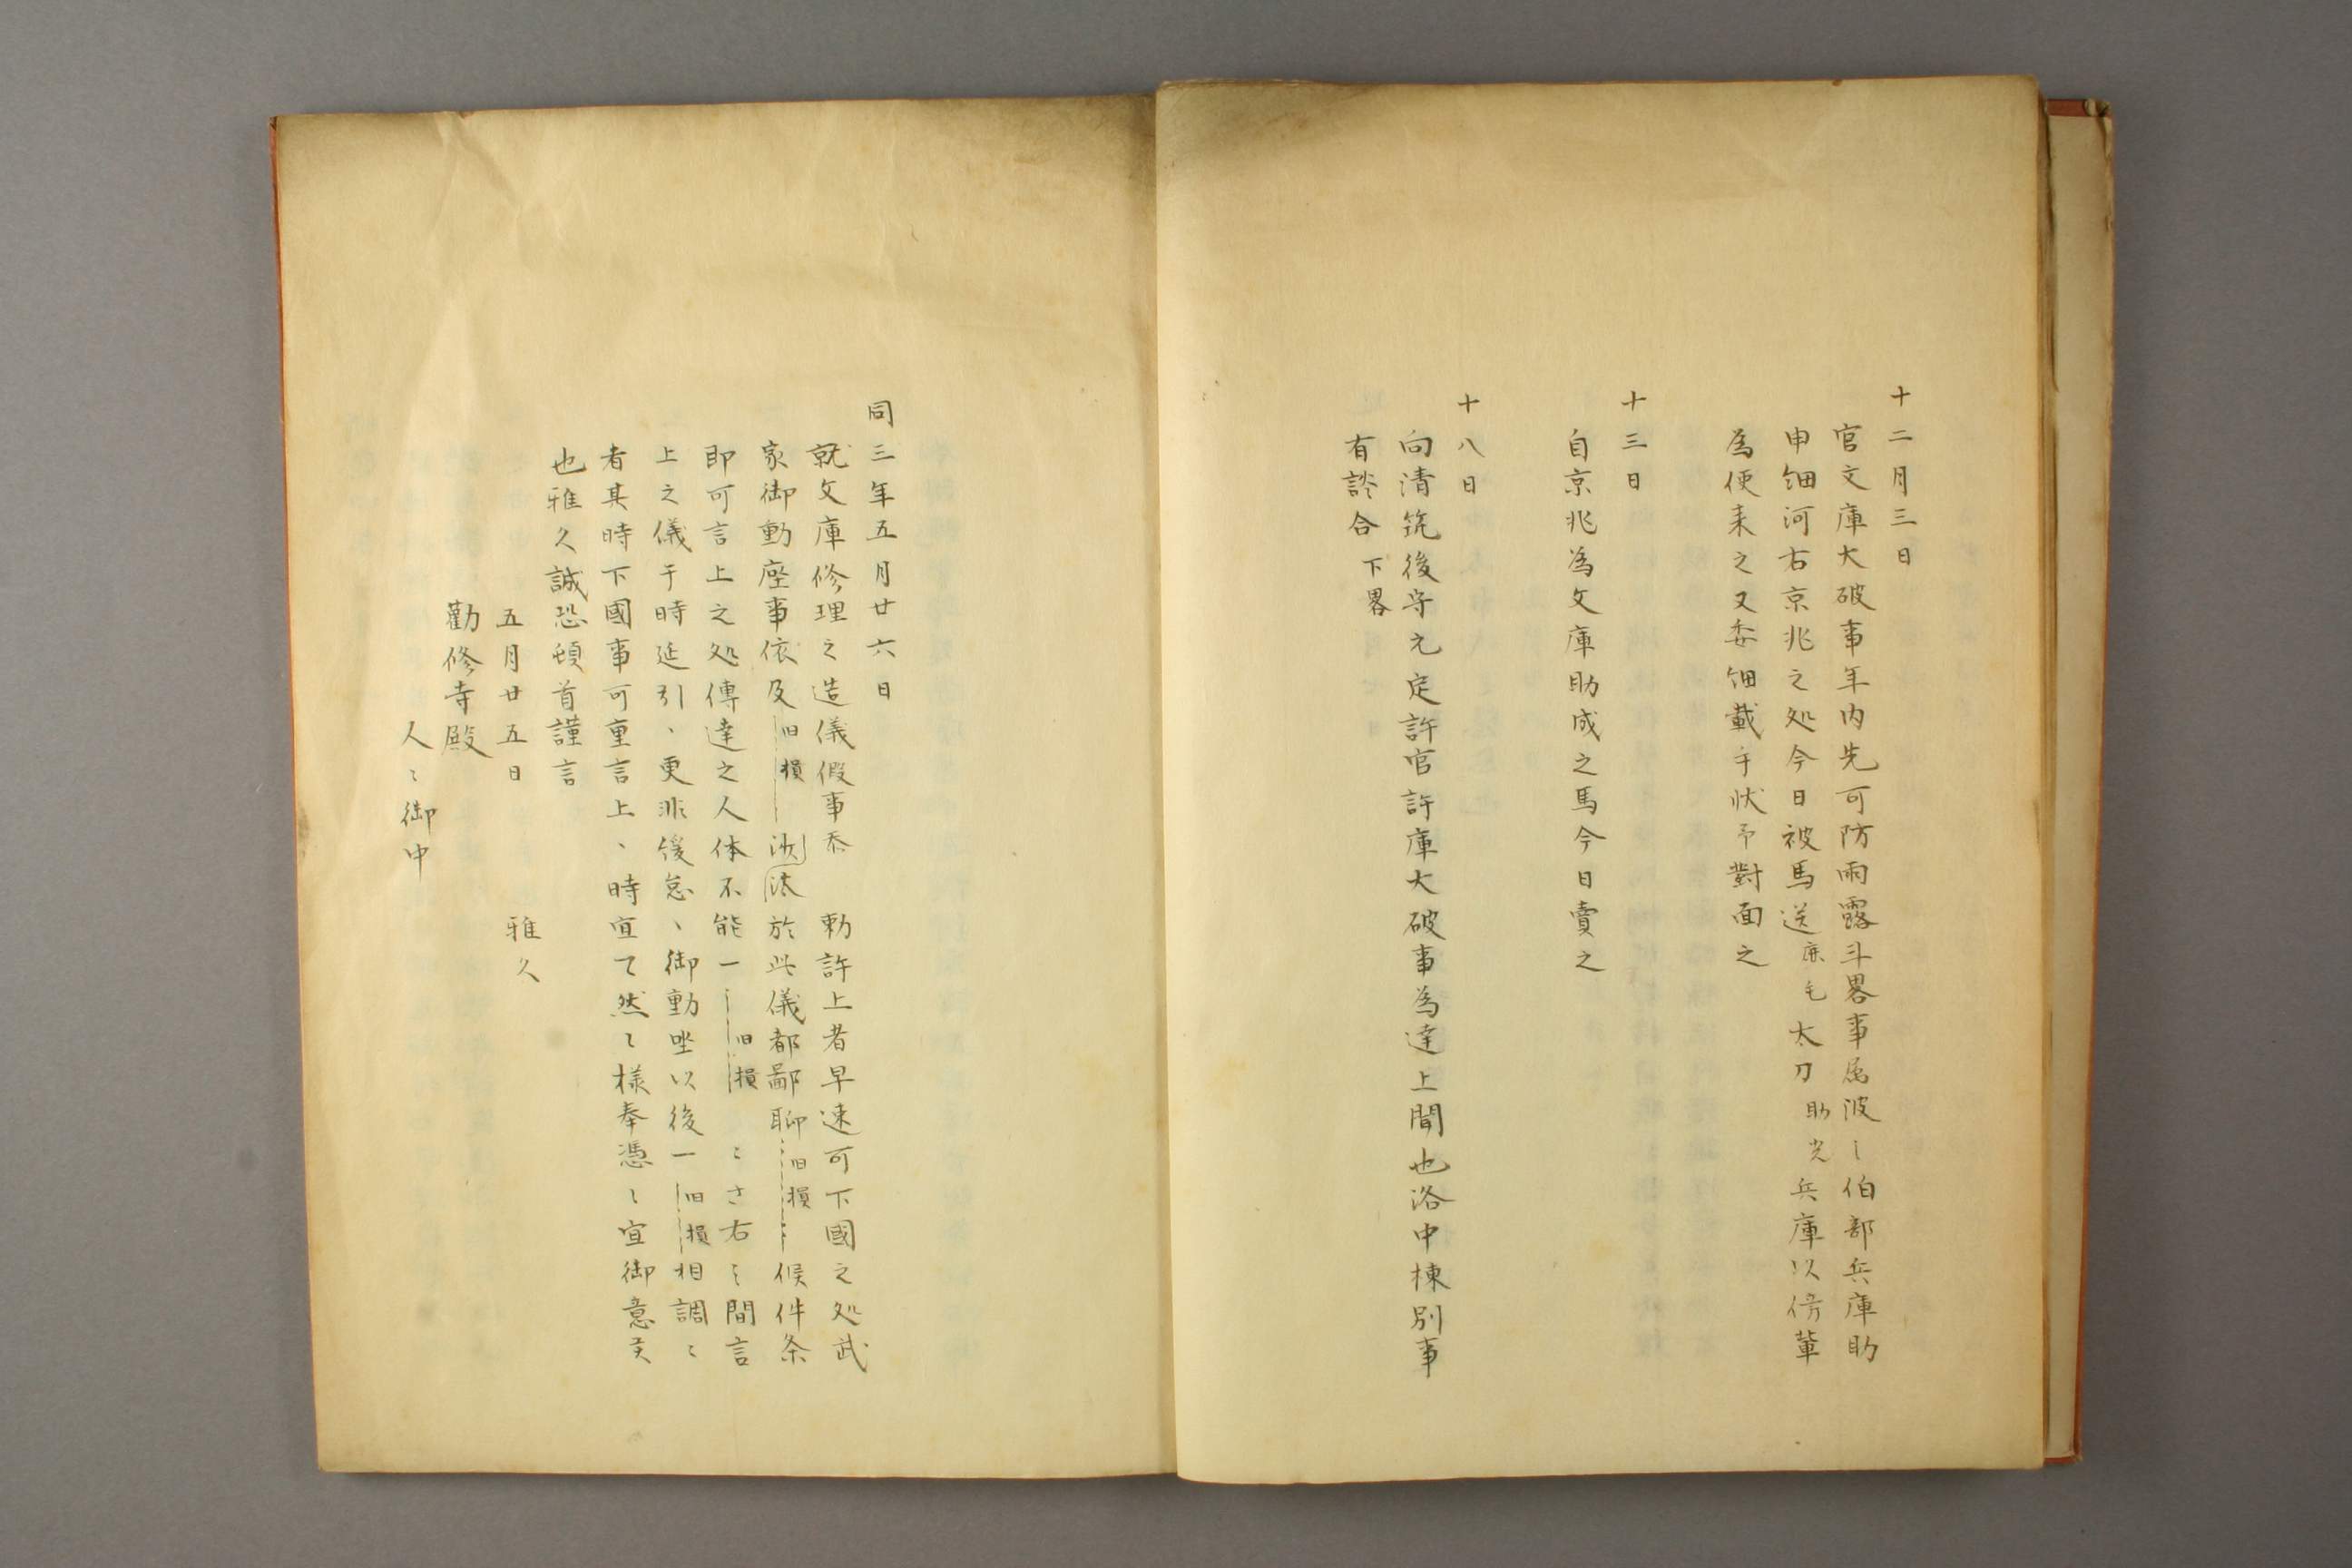 十二月三日
官文庫大破事年内先可防雨露斗畧事属波〻伯部兵庫助
申細河右京兆之処今日被馬送鹿毛太刀助光兵庫以傍輩
為使来之又委細載手状予對面之
十三日
自京兆為文庫助成之馬今日賣之
十八日
向清筑後守元定許官許庫大破事為達上聞也洛中棟別事
有談合下畧
同三年五月廿六日
就文庫修理之造儀假事忝　勅許上者早速可下國之処武
家御動座事依及旧損沙汰於此儀都鄙聊旧損候件条
即可言上之処傳達之人体不能一〻旧損〻さ右〻間言
上之儀于時延引、更非緩怠、御動坐以後一旧損相調〻
者其時下國事可重言上、時宜て然〻様奉憑〻宜御意
也雅久誠恐頓首謹言
五月廿五日　雅久
勸修寺殿
人〻御中